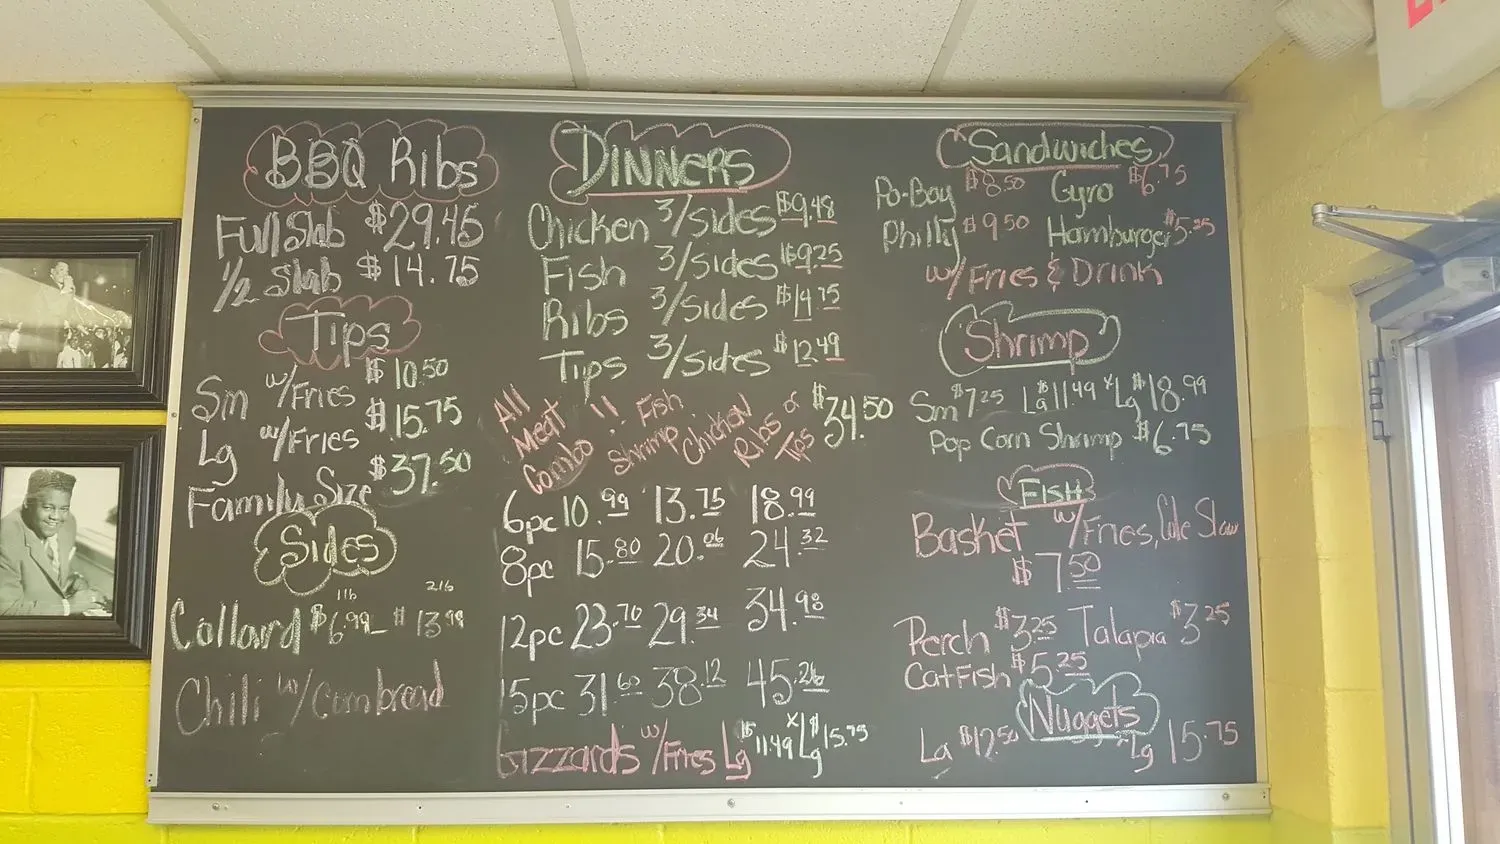 BBQ Ribs
Full Slab $29.45
1/2 Slab $14.75
Tips
Sm w/Fries $10.50
Lg w/Fries $15.75
Family Size $37.50
Sides
1lb 2lb
Collard $6.99 $13.99
Chili w/Cornbread
DINNERS
Chicken 3/sides $9.48
Fish 3/sides $9.25
Ribs 3/sides $14.75
Tips 3/sides $12.49
All Meat Combo !! Fish Shrimp Chicken Ribs or Tips $34.50
6pc 10.99 13.75 18.99
8pc 15.80 20.06 24.32
12pc 23.70 29.34 34.98
15pc 31.60 38.12 45.26
Gizzards w/Fries Lg $11.49 xLg $15.75
Sandwiches
Po-Boy $8.50 Gyro $6.75
Philly $9.50 Hamburger $5.25
w/Fries & Drink
Shrimp
Sm $7.25 La $11.49 xLg $18.99
Pop Corn Shrimp $6.75
FISH
Basket w/Fries, Cole Slaw
$7.50
Perch $3.25 Talapia $3.25
CatFish $5.25
Nuggets
La $12.50 xLg 15.75